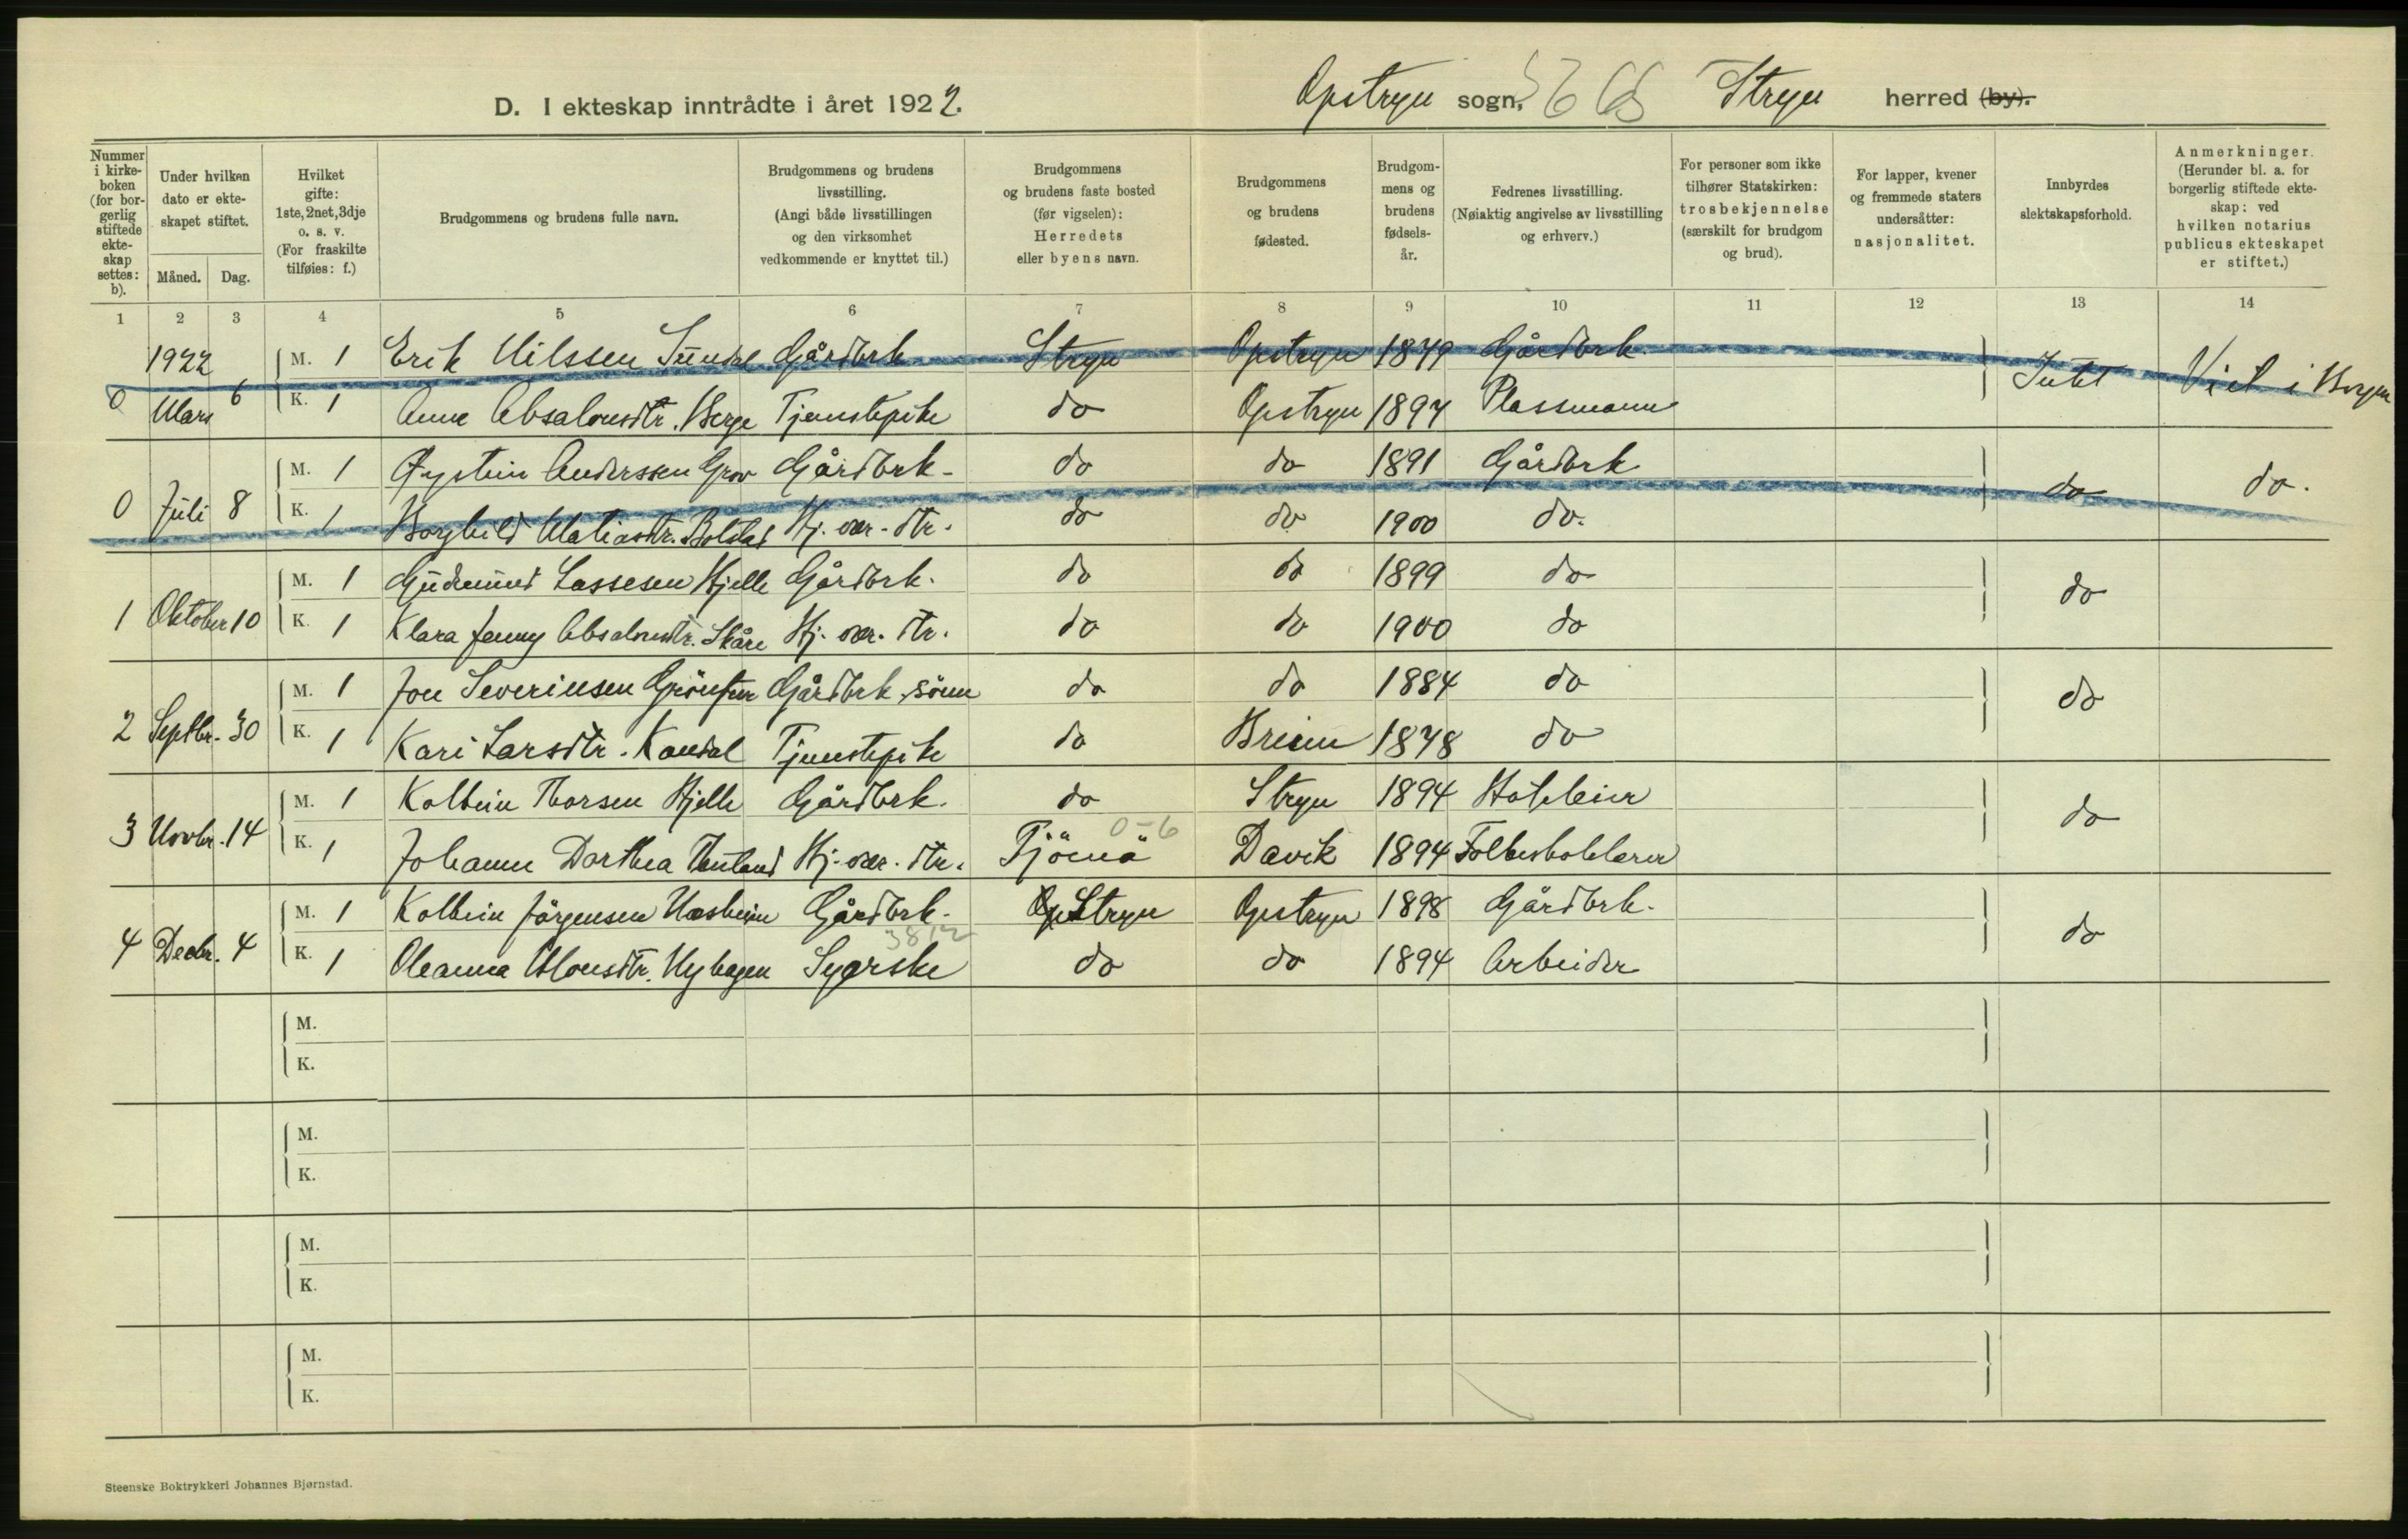 D. I ekteskap inntrådte i året 1922. Opstryn sogn, Stryn herred (by).
Nummer i kirkeboken (for borgerlig stiftede ekteskap settes: b).
Under hvilken dato er ekteskapet stiftet.
Måned. Dag.
Hvilket gifte: 1ste, 2net, 3dje o. s. v. (For fraskilte tilføies: f.)
Brudgommens og brudens fulle navn.
Brudgommens og brudens livsstilling. (Angi både livsstillingen og den virksomhet vedkommende er knyttet til.)
Brudgommens og brudens faste bosted (før vigselen): Herredets eller byens navn.
Brudgommens og brudens fødested.
Brudgommens og brudens fødselsår.
Fedrenes livsstilling. (Nøiaktig angivelse av livsstilling og erhverv.)
For personer som ikke tilhører Statskirken: trosbekjennelse (særskilt for brudgom og brud).
For lapper, kvener og fremmede staters undersåtter: nasjonalitet.
Innbyrdes slektskapsforhold.
Anmerkninger. (Herunder bl. a. for borgerlig stiftede ekteskap: ved hvilken notarius publicus ekteskapet er stiftet.)
1 2 3 4 5 6 7 8 9 10 11 12 13 14
1922 M. 1 Erik Nilssen Sundal Gårdbrk Stryn Opstryn 1879 Gårdbrk. Intet Viet i Bergen
0 Mars 6 K. 1 Anna Absalonsdtr. Berge Tjenestepike do Opstryn 1897 Plassmann
M. 1 Øystein Anderssen Grov Gårdbrk. do do 1891 Gårdbrk do do.
0 Juli 8 K. 1 Borghild Matiasdtr. Bolstad Hj. vær. dtr. do do 1900 do.
M. 1 Gudmund Lassesen Hjelle Gårdbrk. do do 1899 do do
1 Oktober 10 K. 1 Klara Jenny Absalonsdtr. Skåre Hj. vær. dtr. do do 1900 do
M. 1 Jon Severinsen Gårdbrk. sönn do do 1884 do do
2 Septbr. 30 K. 1 Kari Larsdtr. Kandal Tjenestepike do Breim 1878 do
M. 1 Kolbein Thorsen Hjelle Gårdbrk. do Stryn 1894 do
3 Novbr. 14 K. 1 Johanne Dorthea Hj. vær. dtr. Tjömö 0-6 Davik 1894 Folkeskolelærer
M. 1 Kolbein Jörgensen Næsheim Gårdbrk. Stryn Opstryn 1898 Gårdbrk. do
4 Decbr. 4 K. 1 Oleanna Monsdtr. Nyhagen Syerske do do 1894 Arbeider
M.
K.
M.
K.
M.
K.
M.
K.
Steenske Boktrykkeri Johannes Bjørnstad.